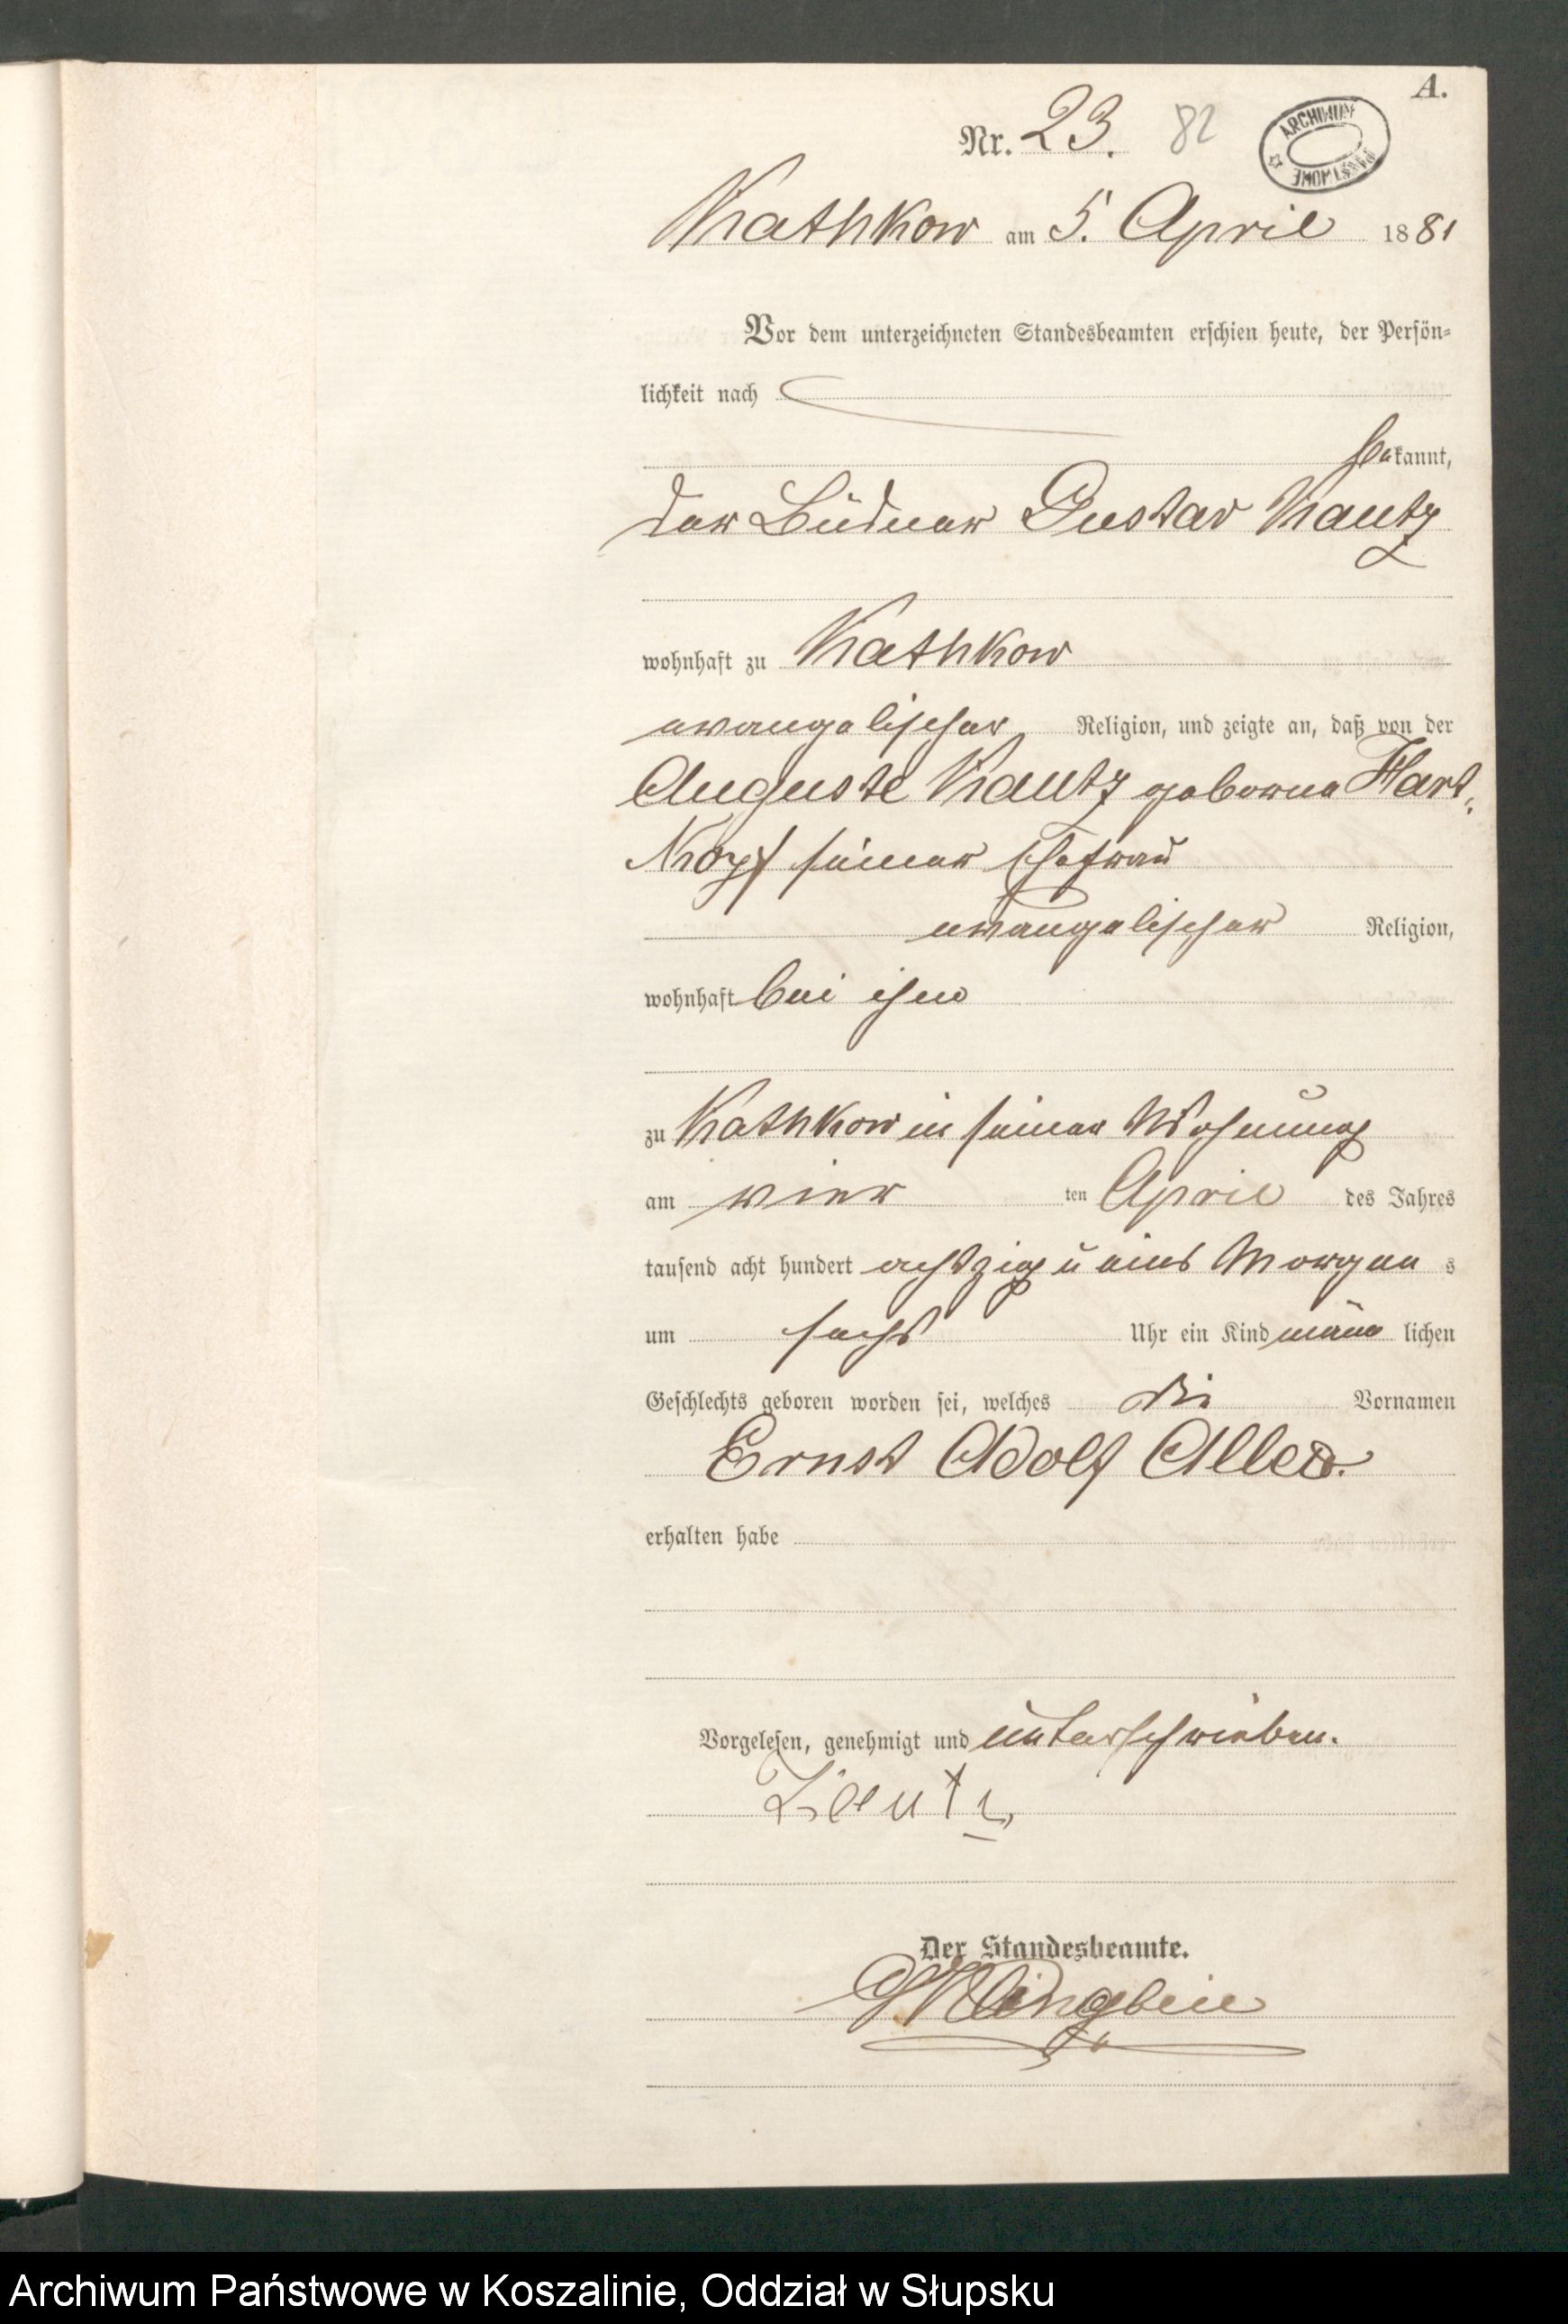 A.
Nr. 23. 82
ARCHIWUM PAŃSTWOWE
Kathkow am 5. April 1881
Vor dem unterzeichneten Standesbeamten erschien heute, der Persön=
lichkeit nach
bekannt,
der Büdner Gustav Kautz
wohnhaft zu Kathkow
evangelischer Religion, und zeigte an, daß von der
Auguste Kautz geborne Hart-
kopf seiner Ehefrau
evangelischer Religion,
wohnhaft bei ihm
zu Kathkow in seiner Wohnung
am vier ten April des Jahres
tausend acht hundert achtzig u eins Morgen s
um sechs Uhr ein Kind männ lichen
Geschlechts geboren worden sei, welches die Vornamen
Ernst Adolf
erhalten habe
Vorgelesen, genehmigt und unterschrieben.
Kautz
Der Standesbeamte.
Klingbeil
Archiwum Państwowe w Koszalinie, Oddział w Słupsku